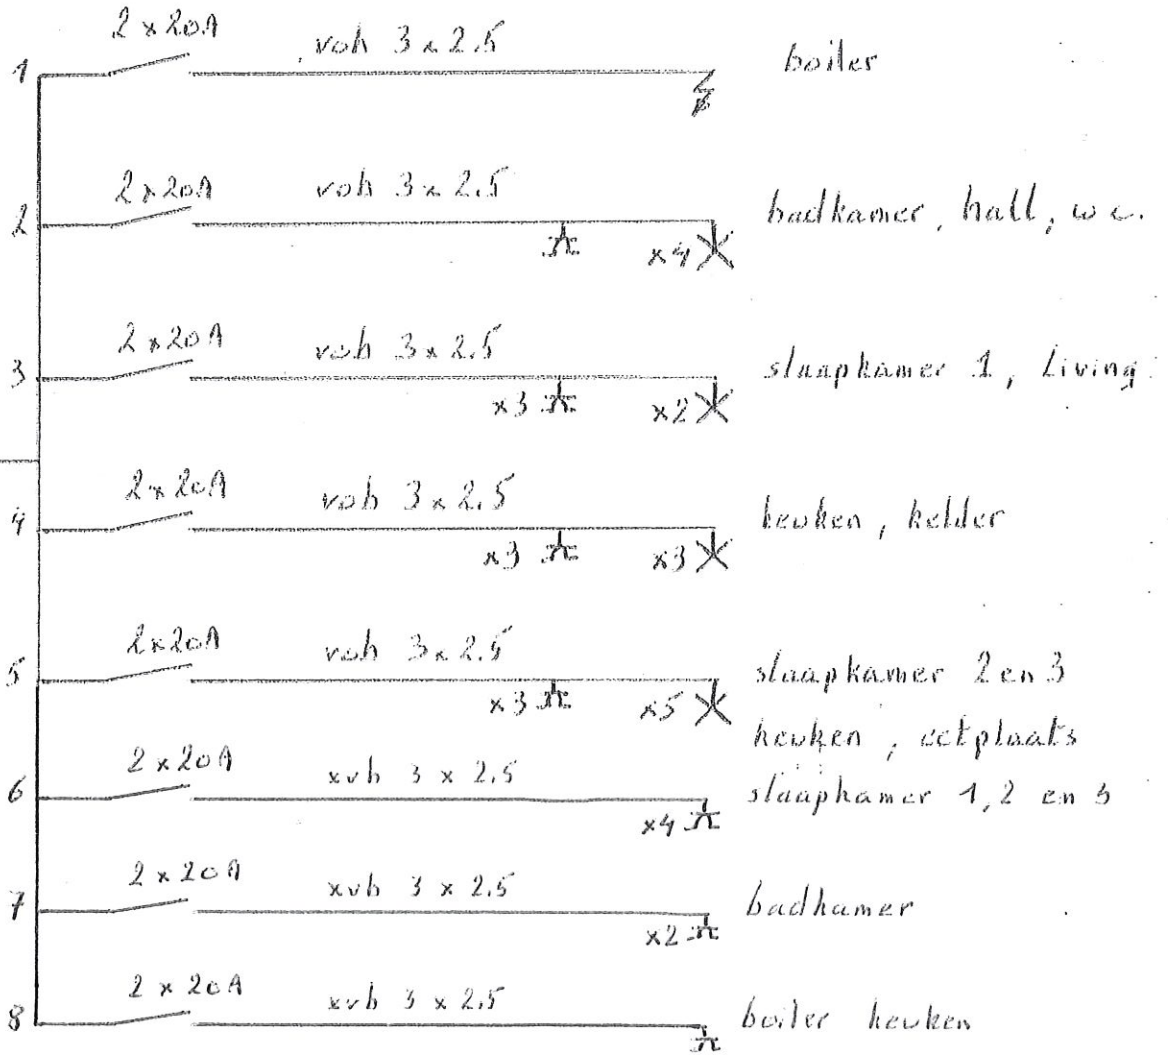 1 2 x 20A voh 3 x 2.5 boiler
2 2 x 20A voh 3 x 2.5 badkamer, hall, wc.
x4
3 2 x 20A voh 3 x 2.5 slaapkamer 1, Living
x3 x2
4 2 x 20A voh 3 x 2.5 keuken, kelder
x3 x3
5 2 x 20A voh 3 x 2.5 slaapkamer 2 en 3
x3 x5
keuken, eetplaats
6 2 x 20A xvb 3 x 2.5 slaapkamer 1, 2 en 3
x4
7 2 x 20A xvb 3 x 2.5 badkamer
x2
8 2 x 20A xvb 3 x 2.5 boiler keuken